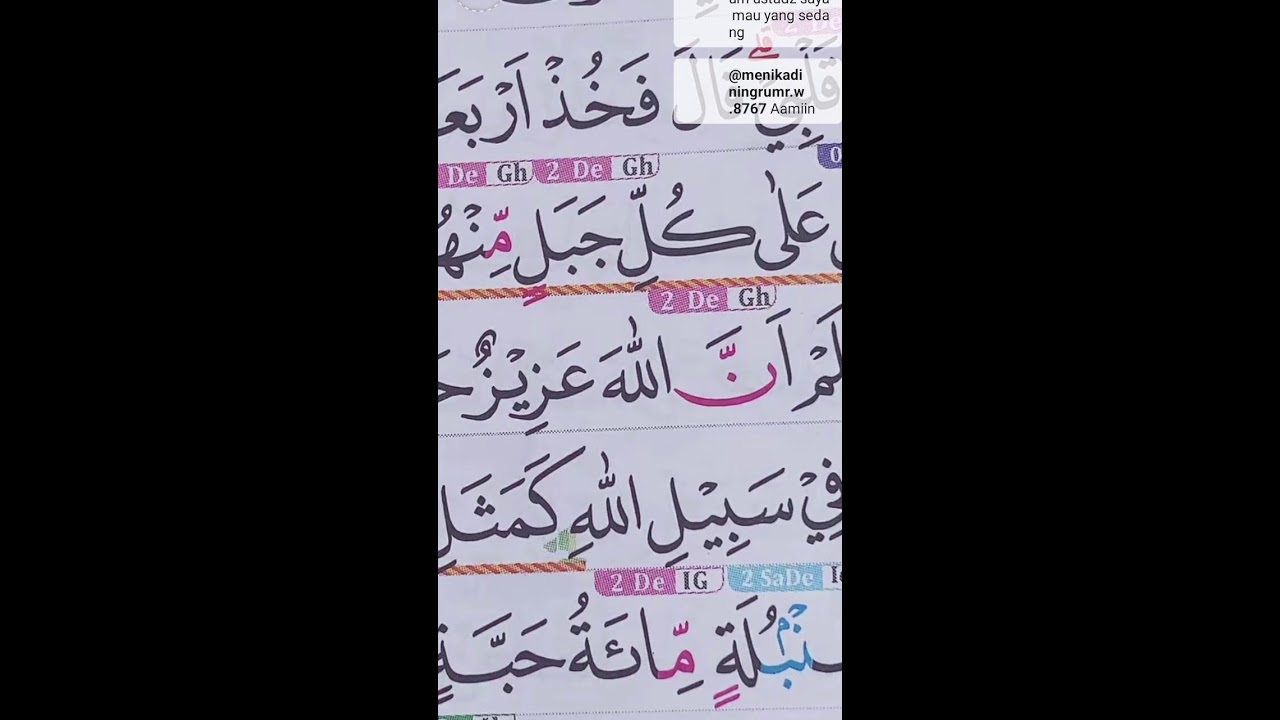 um ustadz saya
mau yang seda
ng
@menikadi
ningrumr.w
.8767 Aamiin
قَالَ فَخُذْ اَرْبَعَ
De Gh 2 De Gh
عَلٰى كُلِّ جَبَلٍ مِّنْهُ
2 De Gh
لَمْ اَنَّ اللّٰهَ عَزِيْزٌ حَ
فِيْ سَبِيْلِ اللّٰهِ كَمَثَلِ
2 De IG 2 SaDe
نْۢبُلَةٍ مِّائَةُ حَبَّةٍ